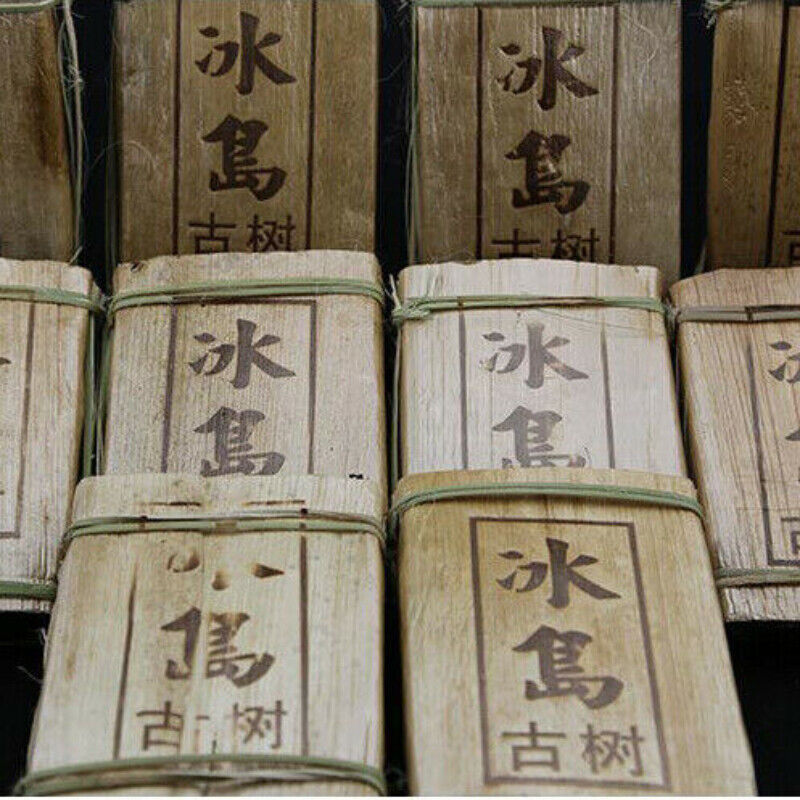 冰島
古树
冰島
古树
冰島
冰島
冰島
古树
冰島
古树